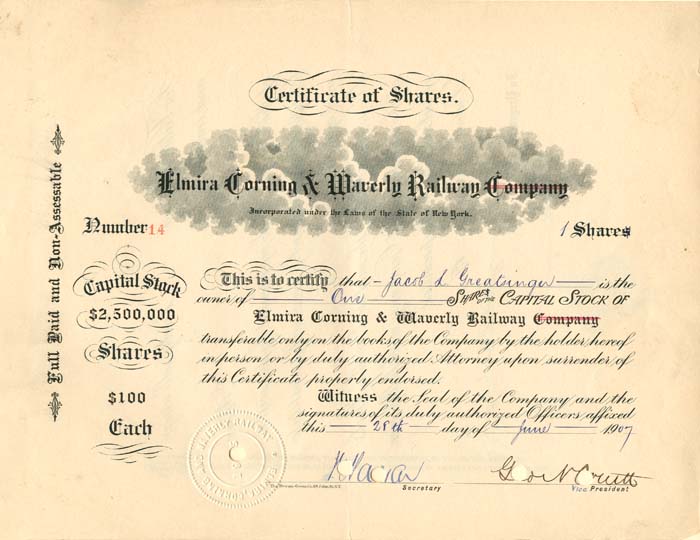 Certificate of Shares.
Elmira Corning & Waverly Railway Company
Incorporated under the Laws of the State of New York.
Number 14
1 Shares
Full Paid and Non-Assessable
Capital Stock
$2,500,000
Shares
$100
Each
This is to certify that Jacob L Greatsinger is the
owner of One SHARES OF THE CAPITAL STOCK OF
Elmira Corning & Waverly Railway Company
transferable only on the books of the Company by the holder hereof
in person or by duly authorized Attorney upon surrender of
this Certificate properly endorsed.
Witness the Seal of the Company and the
signatures of its duly authorized Officers, affixed
this 28th day of June 1907
Secretary
Vice President